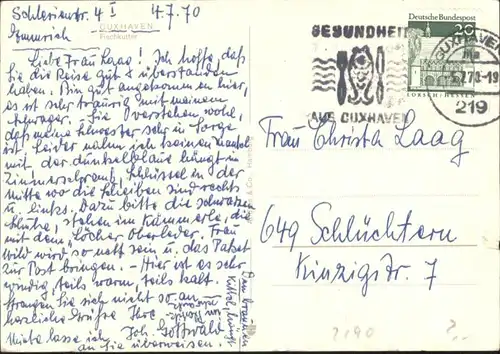 Schlesierstr. 4 I 4.7.70
Emmerich
CUXHAVEN
Fischkutter
Liebe Frau Laag! Ich hoffe, daß
Sie die Reise gut überstanden
haben. Bin gut angekommen hier,
es ist sehr traurig mit meinem
Schwager. Sie verstehen wohl,
daß meine Schwester sehr in Sorge
ist. Leider nahm ich keinen Mantel
mit der dunkelblaue hängt im
Zimmerschrank, Schlüssel in der
Mitte wo die Scheiben sind rechts
u. links. Dazu bitte die schwarzen
Schuhe, stehen im Kämmerle, die
mit dem Löcher Oberleder. Frau
Wild wird so nett sein u. das Paket
zur Post bringen. – Hier ist es sehr
windig, teils warm, teils kalt.
Strengen Sie sich nicht so an
herzliche Grüße Ihre
Joh. Gottwald
Miete lasse ich
an Sie überweisen.
Den braunen
GESUNDHEIT
AUS CUXHAVEN
Deutsche Bundespost
20
LORSCH · HESSEN
CUXHAVEN
219
Frau Christa Laag
649 Schlüchtern
Kinzigstr. 7
2190